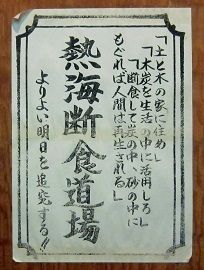 「土と木の家に住め」
「木炭を生活の中に活用しろ」
「断食して炭の中、砂の中に
もぐれば人間は再生される」
熱海断食道場
よりよい明日を追究する!!